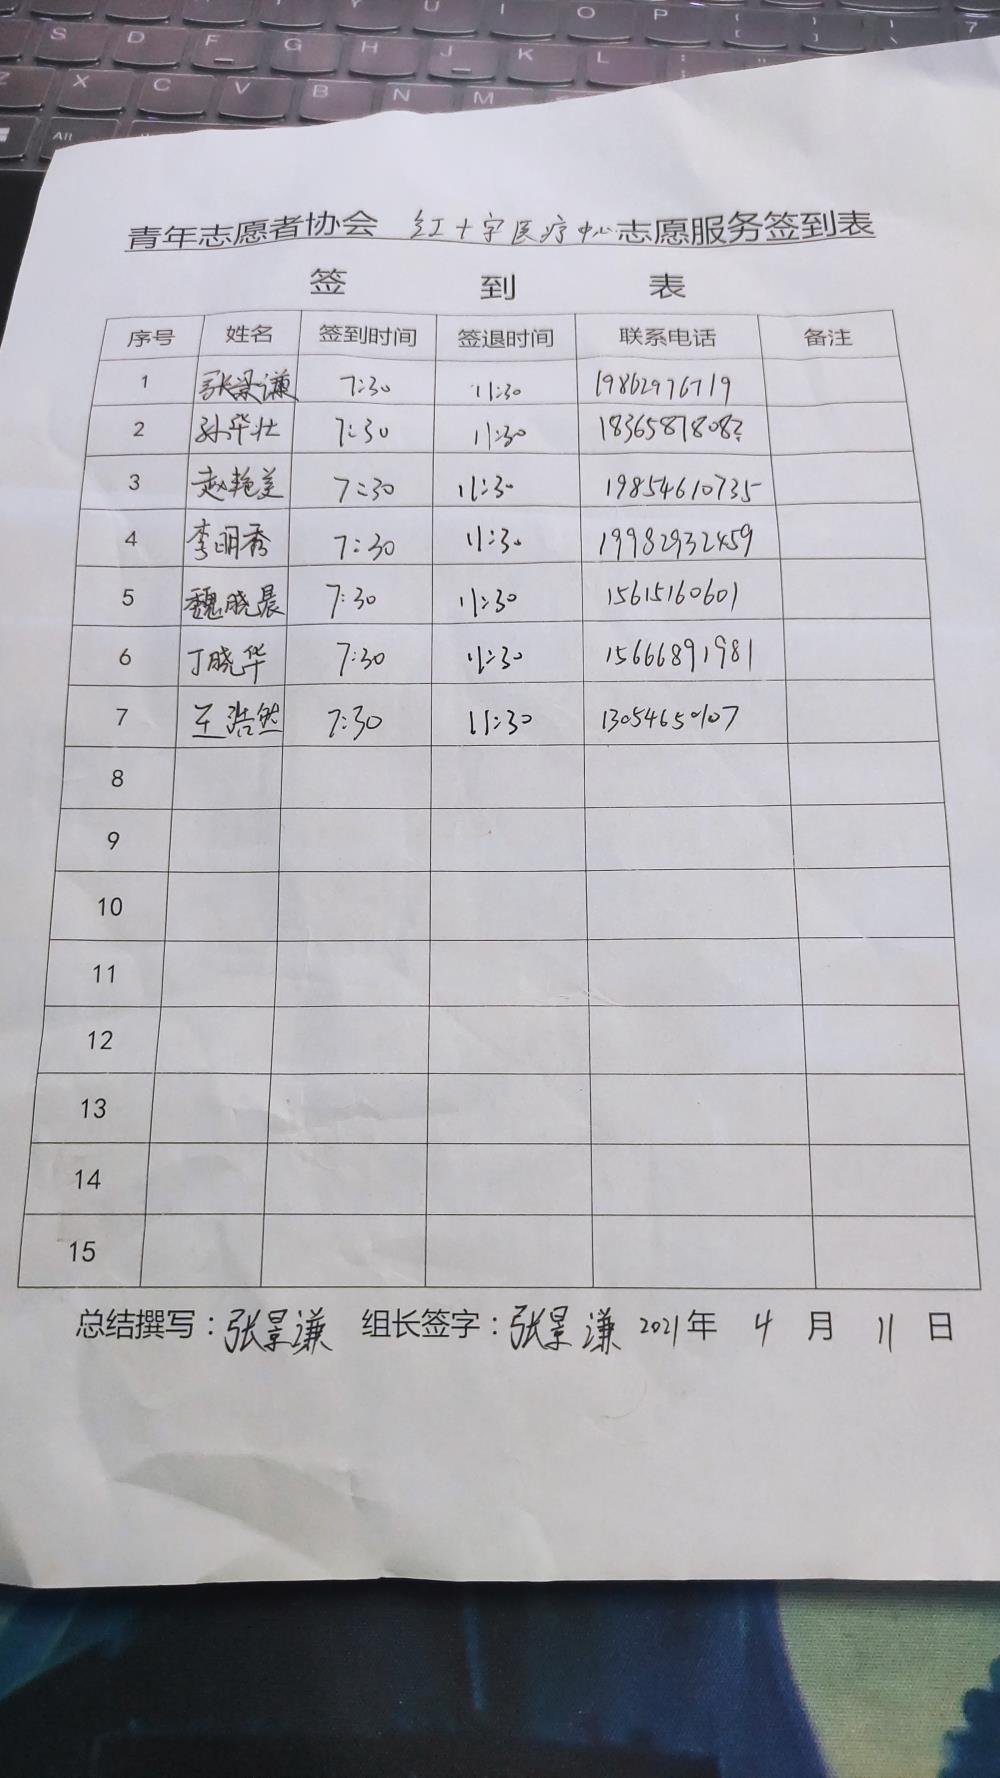 Y U I O P
S D F G H J K L
Z X C V B N M
Alt
青年志愿者协会 红十字医疗中心志愿服务签到表
签 到 表
序号 姓名 签到时间 签退时间 联系电话 备注
1 张景谦 7:30 11:30 19862976719
2 孙华壮 7:30 11:30
3 赵艳美 7:30 11:30 19854610735
4 李明秀 7:30 11:30 19982932459
5 魏晓晨 7:30 11:30 15615160601
6 丁晓华 7:30 11:30 15666891981
7 王浩然 7:30 11:30 13054650107
8
9
10
11
12
13
14
15
总结撰写：张景谦 组长签字：张景谦 2021年 4 月 11 日